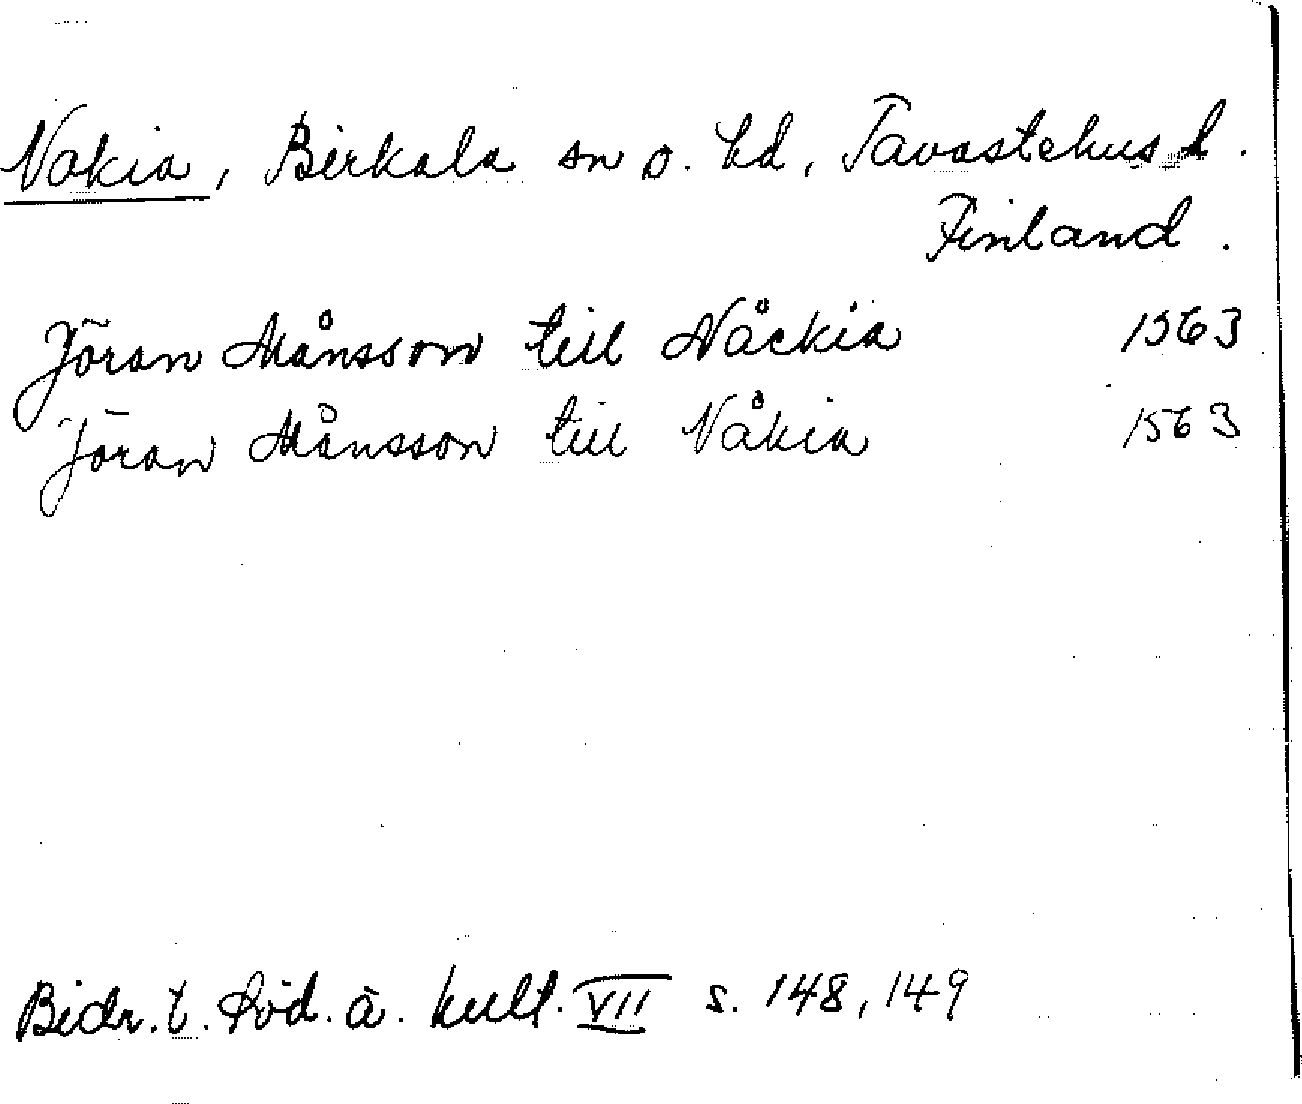 Nokia, Birkala sn o. hd, Tavastehus l.
Finland.
Jöran Månsson till Nåckia 1563
Jöran Månsson till Nåkia 1563
Bidr. t. Söd. ä. kult. VII s. 148, 149